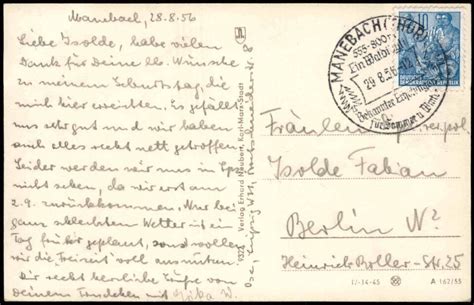 Manebach, 28.8.56
Liebe Isolde, habe vielen
Dank für Deine lb. Wünsche
zu meinem Geburtstag, die
mich hier erreichten. Es gefällt
uns sehr gut und wir haben
auch alles sehr nett getroffen.
Leider werden wir uns in
nicht sehen, da wir erst am
2.9. zurückkommen. Nur bei
ganz schlechtem Wetter ist ein
Tag früher geplant, sonst wollen
wir die Freizeit voll ausnutzen.
Dir recht herzliche Grüße von
Deinem
5324 Verlag Erhard Neubert, Karl-Marx-Stadt
MANEBACH (THÜR
555-800
Ein Waldidyll
29.8.56
Bekannter
für Sommer u. Winter
10
DEUTSCHE
DEMOKRATISCHE REPUBLIK
Fräulein
Isolde Fabian
Berlin N
Heinrich Roller-Str. 25
A 162/55